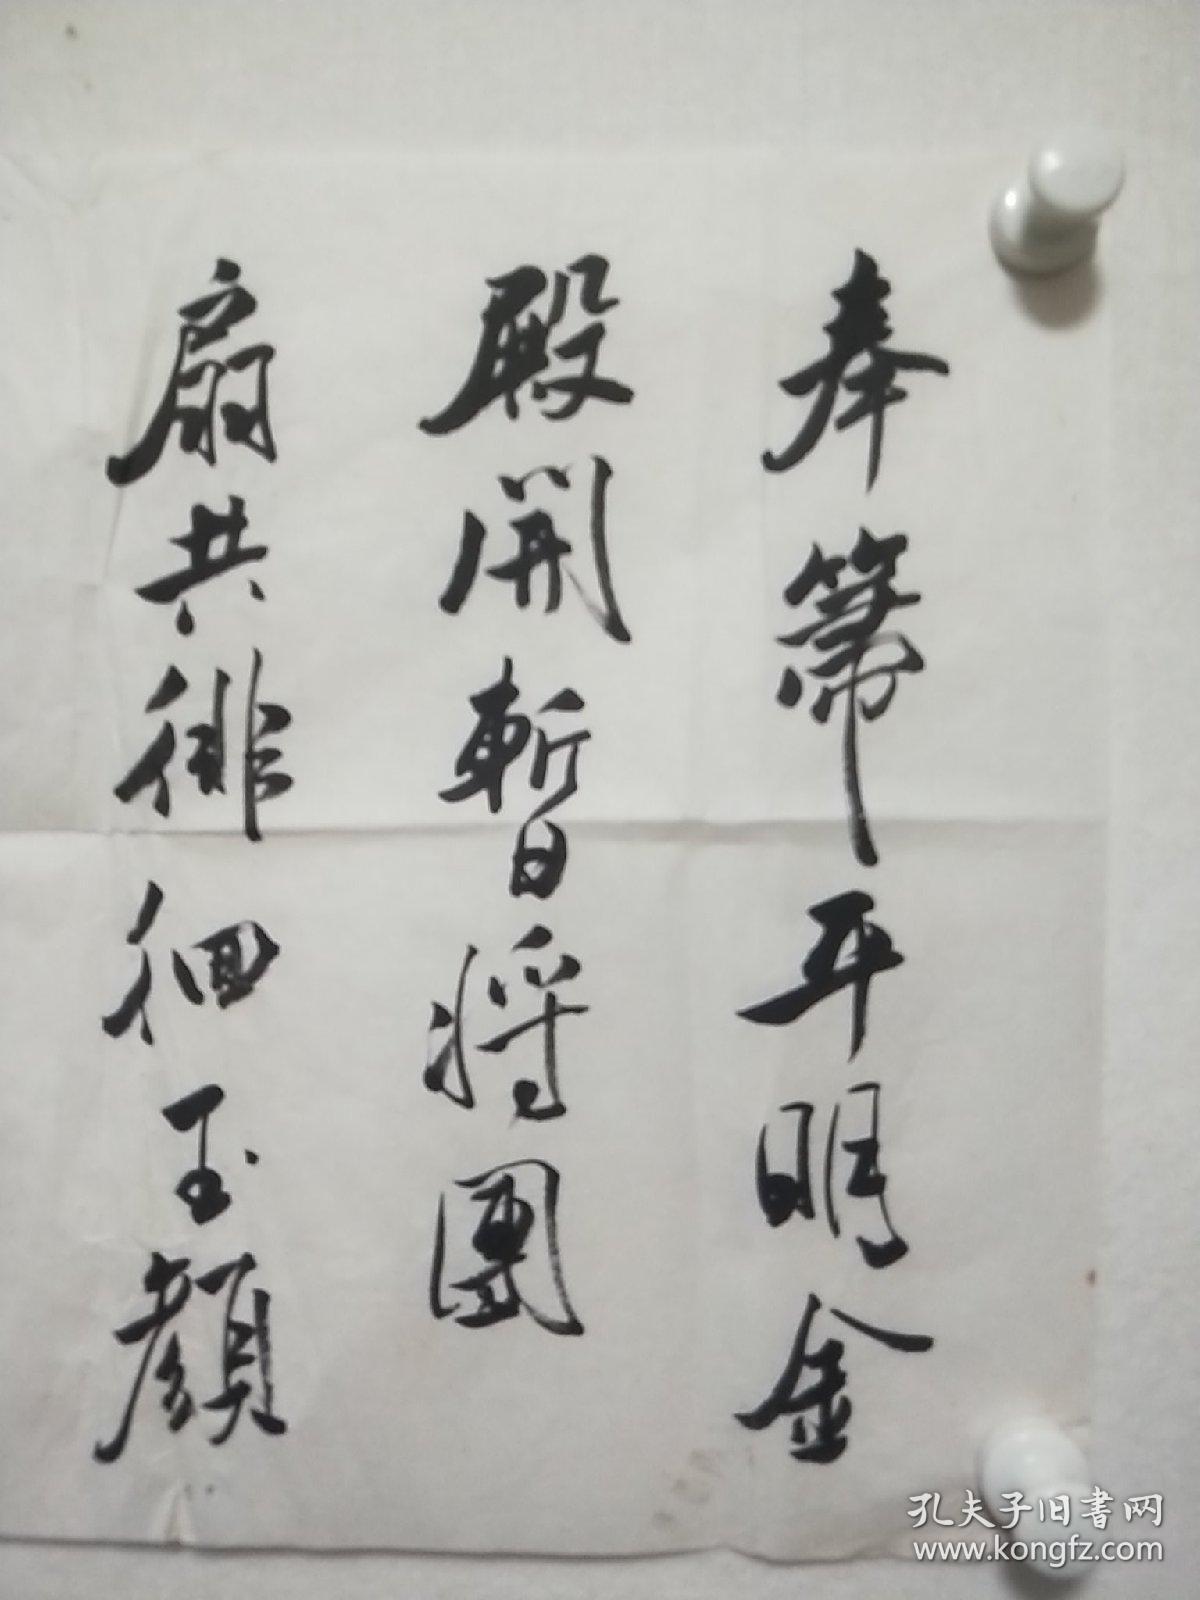 奉箒平明金
殿開暫将團
扇共徘徊玉顔
孔夫子旧书网
www.kongfz.com